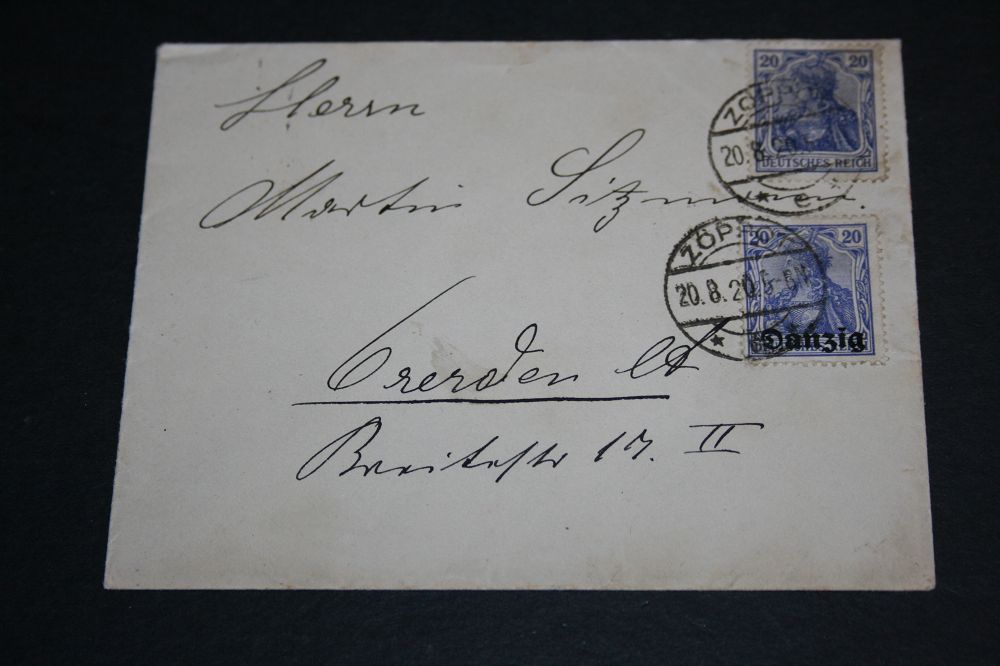 Herrn
Martin Sitzmann.
Dresden A
Breitestr 17. II
20 20
DEUTSCHES REICH
ZOPPOT
20.8.20.
* e
20 20
Danzig
ZOPPOT
20.8.20.5-6N
*